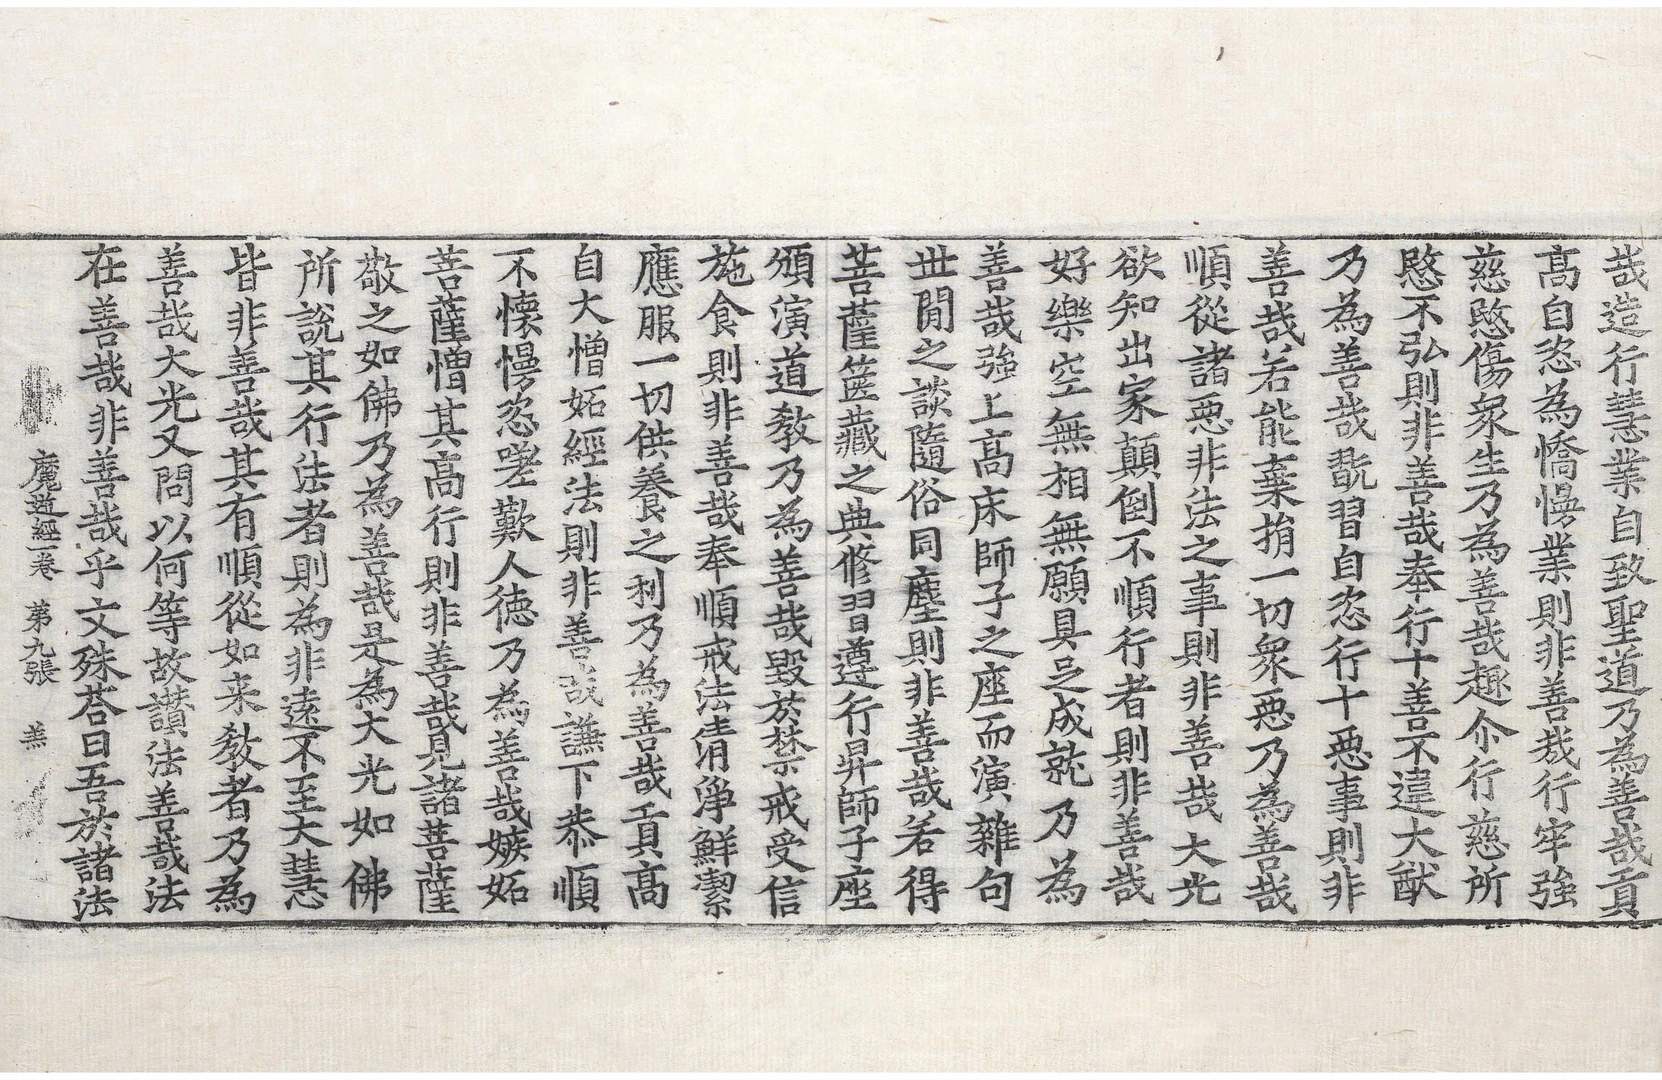 哉造行慧業自致聖道乃為善哉貢
高自恣為憍慢業則非善哉行牢強
慈愍傷眾生乃為善哉趣尒行慈所
愍不弘則非善哉奉行十善不違大猷
乃為善哉翫習自恣行十惡事則非
善哉若能棄捐一切眾惡乃為善哉
順從諸惡非法之事則非善哉大光
欲知出家顛倒不順行者則非善哉
好樂空無相無願具足成就乃為
善哉強上高床師子之座而演雜句
世閒之談隨俗同塵則非善哉若得
菩薩篋藏之典修習遵行昇師子座
頒演道教乃為善哉毀於禁戒受信
施食則非善哉奉順戒法清淨鮮潔
應服一切供養之利乃為善哉貢高
自大憎妬經法則非善哉謙下恭順
不懷慢恣嗟歎人德乃為善哉嫉妬
菩薩憎其高行則非善哉見諸菩薩
敬之如佛乃為善哉是為大光如佛
所說其行法者則為非遠不至大慧
皆非善哉其有順從如来教者乃為
善哉大光又問以何等故讃法善哉法
在善哉非善哉乎文殊荅曰吾於諸法
魔逆經一卷 第九張 羔